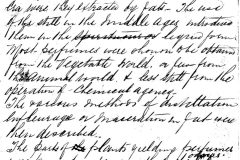 were they extracted by fats. The use
of the still in the middle ages introduces
them in the liquid form
Most perfumes were shown to be obtained
from the Vegetable World, a few from
the Animal World, & less still from the
operation of Chemical agency.
The various methods of distillation
Enfleurage or Maceration in fat were
then described.
The parts of plants yielding perfumes